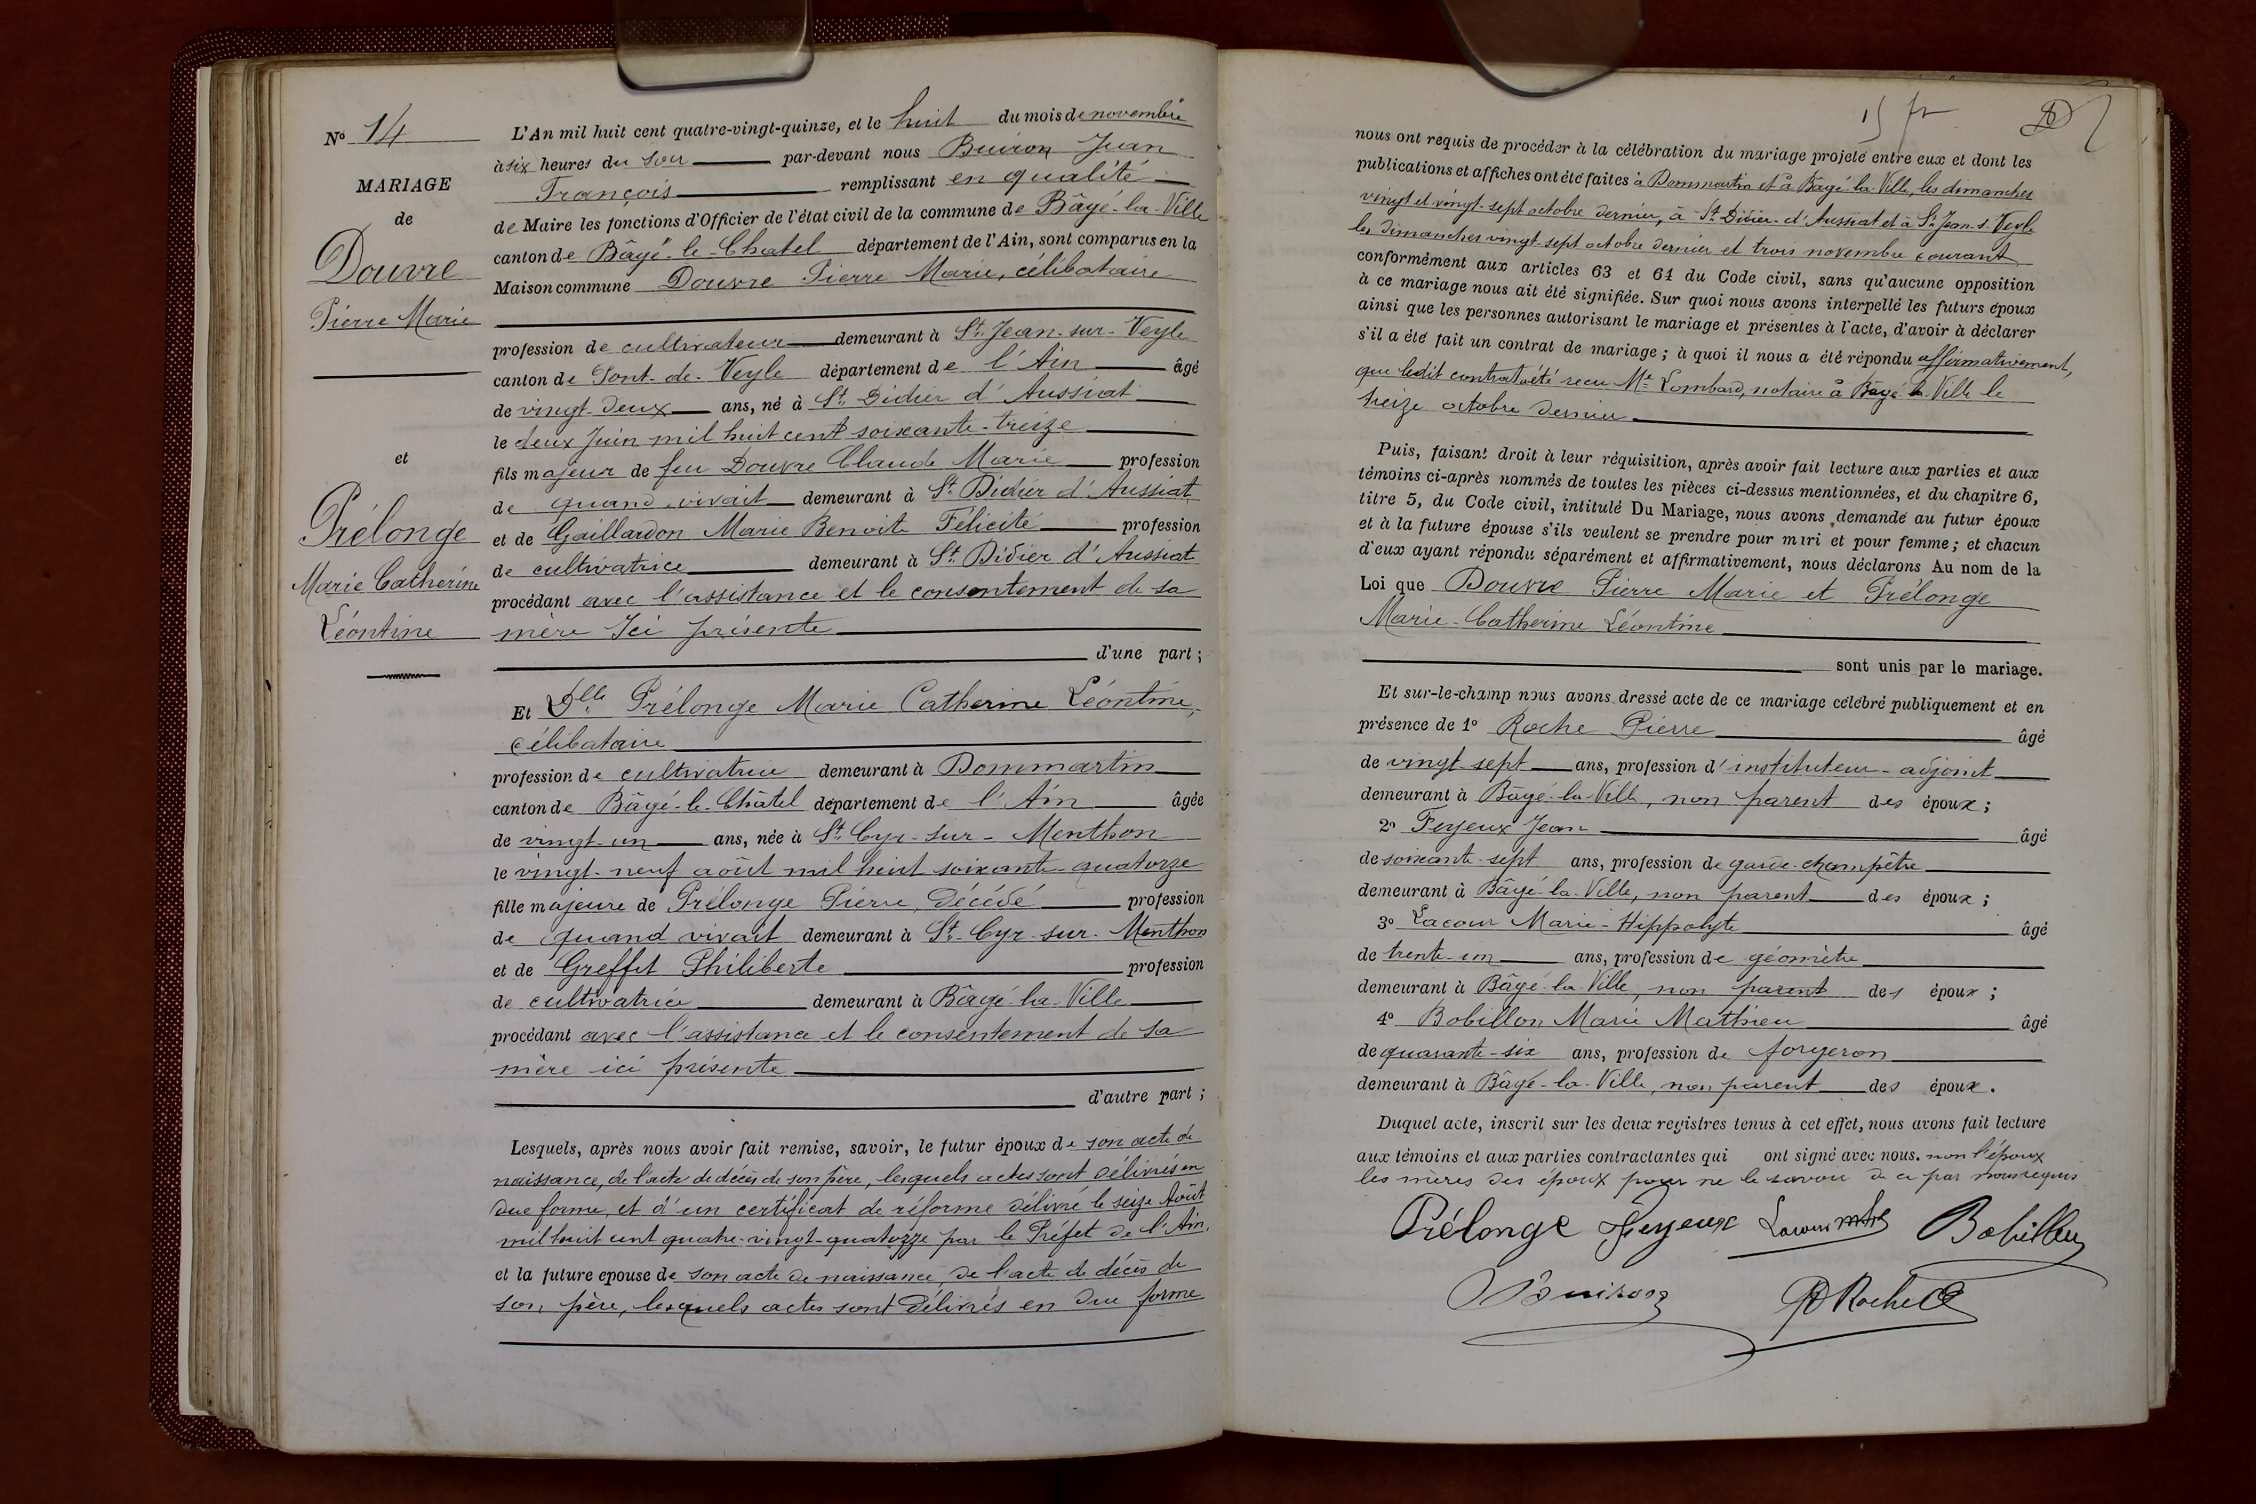 N° 14
MARIAGE
de
Douvre
Pierre Marie
et
Prélonge
Marie Catherine
Léontine
L'An mil huit cent quatre-vingt-quinze, et le huit du mois de novembre
à six heures du soir par-devant nous Buiron Jean
François remplissant en qualité
de Maire les fonctions d'Officier de l'état civil de la commune de Bâgé-la-Ville
canton de Bâgé-le-Chatel département de l'Ain, sont comparus en la
Maison commune Douvre Pierre Marie, célibataire
profession de cultivateur demeurant à St Jean-sur-Veyle
canton de Pont-de-Veyle département de l'Ain âgé
de vingt-deux ans, né à St Didier d'Aussiat
le deux Juin mil huit cent soixante-treize
fils majeur de feu Douvre Claude Marie profession
de quand vivait demeurant à St Didier d'Aussiat
et de Gaillardon Marie Benoite Félicité profession
de cultivatrice demeurant à St Didier d'Aussiat
procédant avec l'assistance et le consentement de sa
mère Ici présente
d'une part ;
Et Dlle Prélonge Marie Catherine Léontine,
célibataire
profession de cultivatrice demeurant à Dommartin
canton de Bâgé-le-Châtel département de l'Ain âgée
de vingt-un ans, née à St Cyr-sur-Menthon
le vingt-neuf août mil huit soixante-quatorze
fille majeure de Prélonge Pierre, Décédé profession
de quand vivait demeurant à St-Cyr-sur-Menthon
et de Greffet Philiberte profession
de cultivatrice demeurant à Bâgé-la-Ville
procédant avec l'assistance et le consentement de sa
mère ici présente
d'autre part ;
Lesquels, après nous avoir fait remise, savoir, le futur époux de son acte de
naissance, de l'acte de décès de son père, lesquels actes sont délivrés en
due forme, et d'un certificat de réforme délivré le seize Août
mil huit cent quatre-vingt-quatorze par le Préfet de l'Ain,
et la future epouse de son acte de naissance, de l'acte de décès de
son père, lesquels actes sont délivrés en due forme
nous ont requis de procéder à la célébration du mariage projeté entre eux et dont les
publications et affiches ont été faites à Dommartin et à Bâgé-la-Ville, les dimanches
vingt et vingt-sept octobre dernier, à St Didier-d'Aussiat et à St Jean-s-Veyle
les dimanches vingt-sept octobre dernier et trois novembre courant
conformément aux articles 63 et 64 du Code civil, sans qu'aucune opposition
à ce mariage nous ait été signifiée. Sur quoi nous avons interpellé les futurs époux
ainsi que les personnes autorisant le mariage et présentes à l'acte, d'avoir à déclarer
s'il a été fait un contrat de mariage ; à quoi il nous a été répondu affirmativement,
que ledit contrat a été recu Me Lombard, notaire à Bâgé-la-Ville le
treize octobre dernier
Puis, faisant droit à leur réquisition, après avoir fait lecture aux parties et aux
témoins ci-après nommés de toutes les pièces ci-dessus mentionnées, et du chapitre 6,
titre 5, du Code civil, intitulé Du Mariage, nous avons demandé au futur époux
et à la future épouse s'ils veulent se prendre pour mari et pour femme ; et chacun
d'eux ayant répondu séparément et affirmativement, nous déclarons Au nom de la
Loi que Douvre Pierre Marie et Prélonge
Marie-Catherine Léontine
sont unis par le mariage.
Et sur-le-champ nous avons dressé acte de ce mariage célébré publiquement et en
présence de 1° Roche Pierre âgé
de vingt-sept ans, profession d'instituteur-adjoint
demeurant à Bâgé-la-Ville, non parent des époux ;
2° Feyeux Jean âgé
de soixante-sept ans, profession de garde-champêtre
demeurant à Bâgé-la-Ville, non parent des époux ;
3° Lacour Marie-Hippolyte âgé
de trente-un ans, profession de géomètre
demeurant à Bâgé-la-Ville, non parent des époux ;
4° Bobillon Marie Mathieu âgé
de quarante-six ans, profession de forgeron
demeurant à Bâgé-la-Ville, non parent des époux.
Duquel acte, inscrit sur les deux registres tenus à cet effet, nous avons fait lecture
aux témoins et aux parties contractantes qui ont signé avec nous. non l'époux
les mères des époux pour ne le savoir de ce par nous requis
Prélonge Feyeux Lacour Bobillon
Buiron P Roche